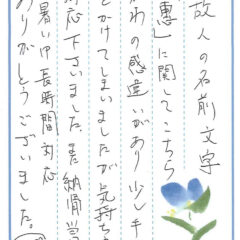 故人の名前文字
惠」に関してこちら
がわの感違いがあり少し手
とかけてしまいましたが気持ち
対応下さいました。また納骨当
暑い中長時間対応
ありがとうございました。